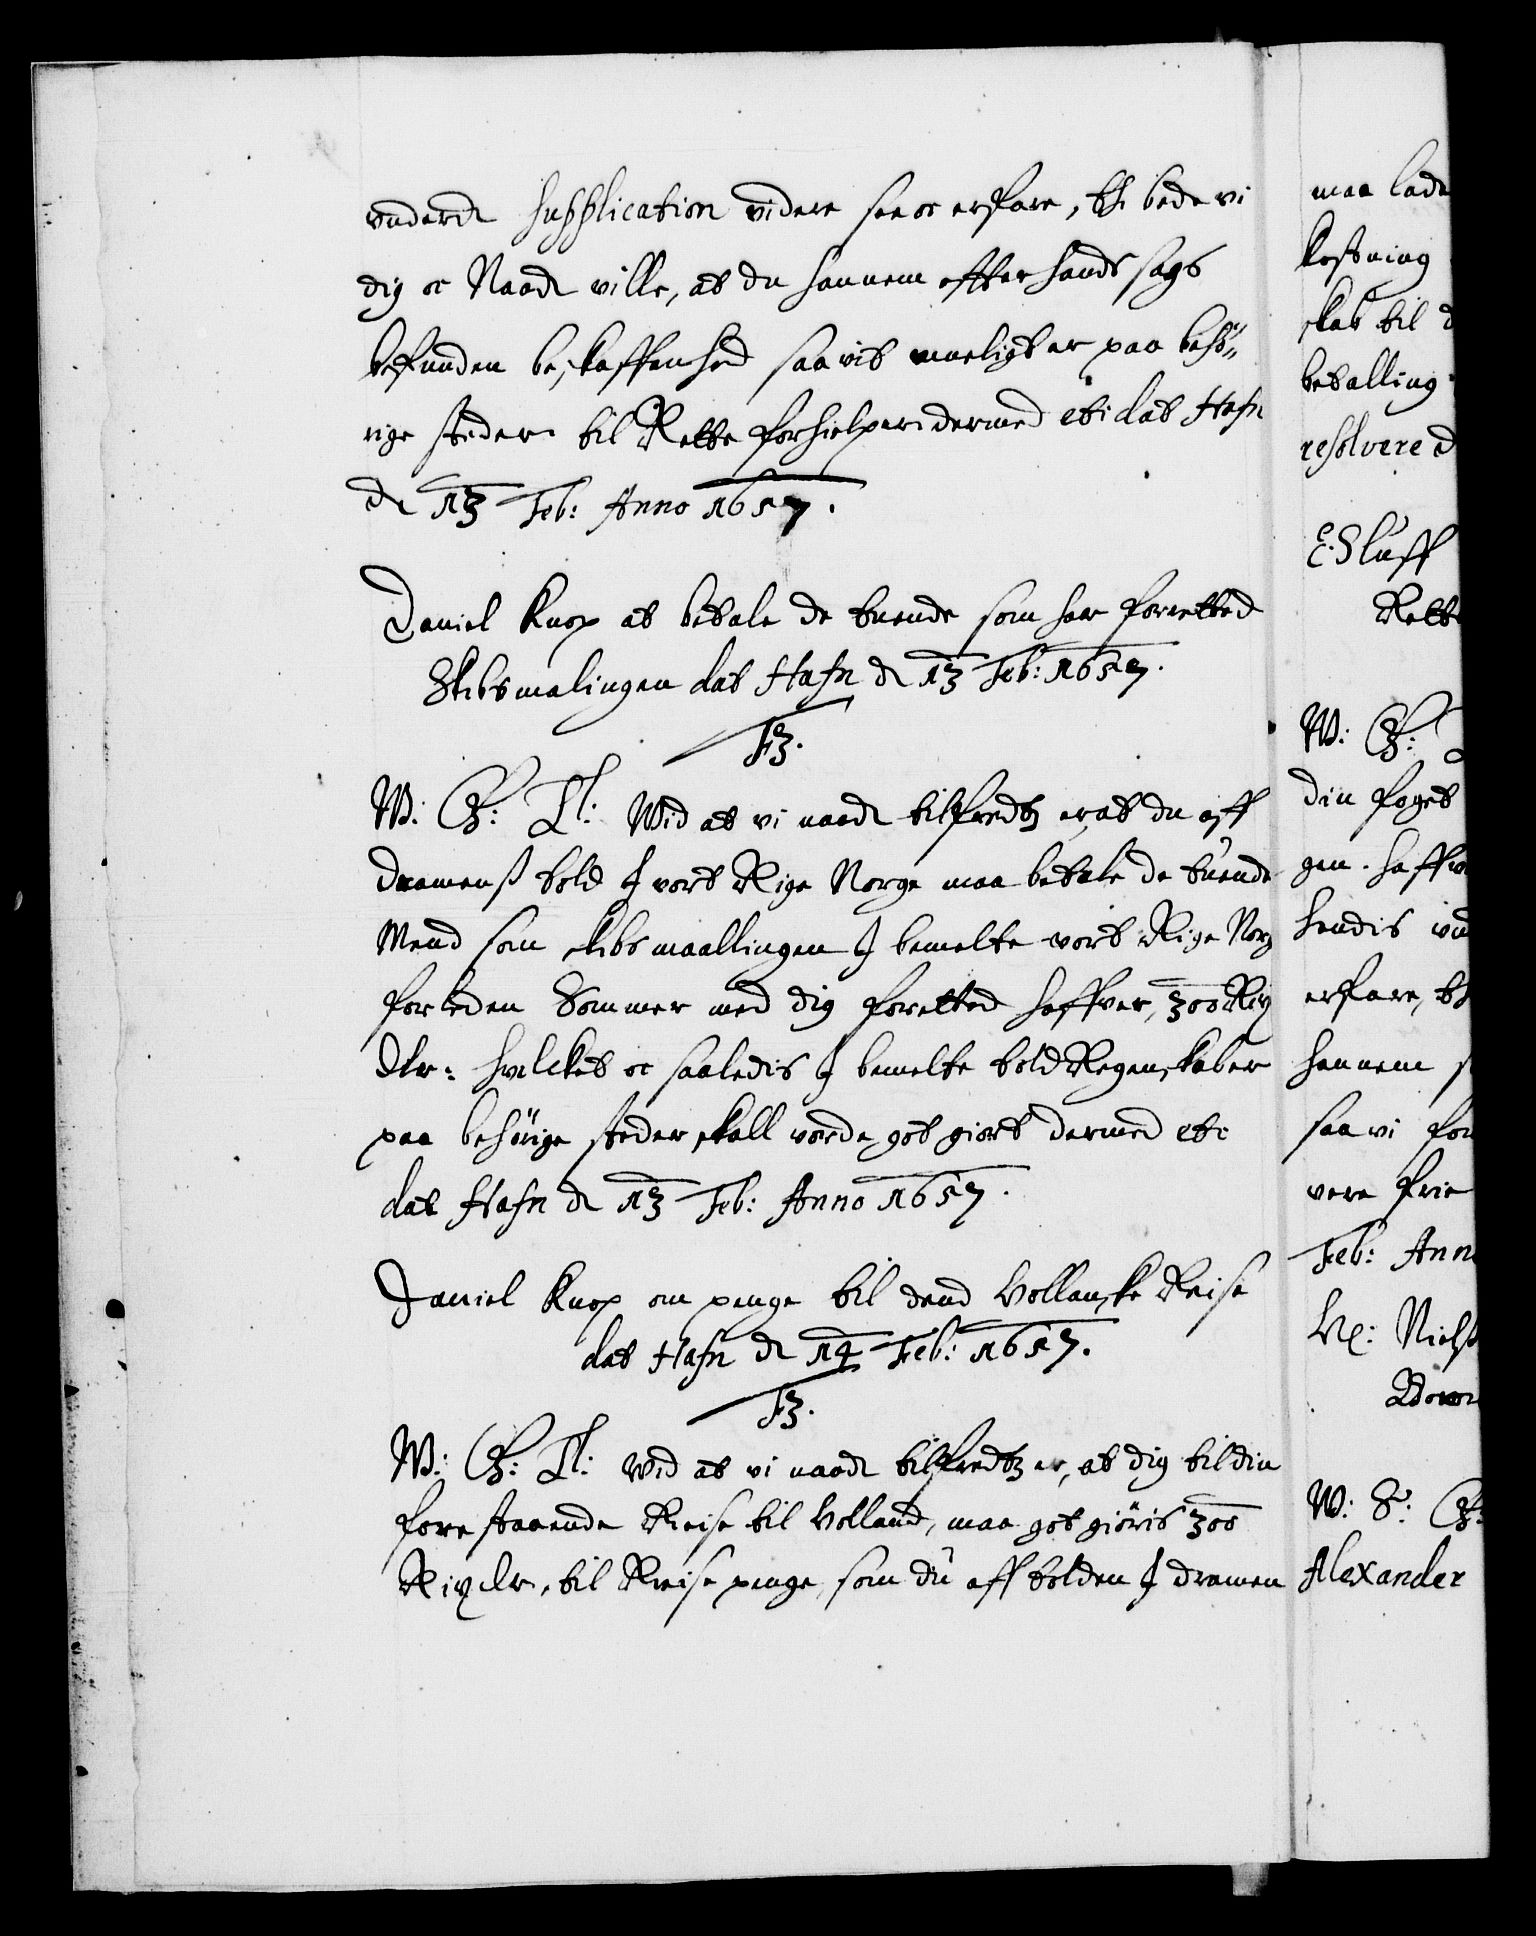 underd: Supplication videre see oc erfare, thi bede vi
dig oc Naad: ville, at du hannem effter hands sags
befunden beskaffenhed saavit mueligt er paa behö,,
rige steder til Rette forhielper: dermed etc: dat Hafn
d: 13 Feb: Anno 1657.
Daniel Knop at betale de tuende som har forretted
Skibsmalingen dat Hafn d: 13 Feb: 1657.
F3.
W: G: T: Wid at vi naad: tilfredtz er, at du aff
Dramenß told J vort Rige Norge maa betale de tuende
Mend som skibsmaallingen J bemelte vort Rige Norg
forleden Sommer med dig foretted haffver, 300 Rix
dlr: huilcket oc saaledis J bemelte told Regenskaber
paa behörige steder skall vorde got giort dermed etc:
dat Hafn d: 13 Feb: Anno 1657.
Daniel Knop om penge til dend Hollanske Reise
dat Hafn d: 14 Feb: 1657.
F3.
W: G: T: Wid at vi naad: tilfredtz er, at dig til din
forestaaende Reise til Holland, maa got giöris 300
Rixdlr. til Reise penge, som du aff tolden J Dramen
maa lade
kostning
skab til
betalling
resolvere d
E. Sluff
Rette
W: G:
din foget
gen. haffve
hendis und
erfare, th
hannem
saa vi for
vere frie
Feb: Anno
Niels
W: S: G:
Alexander